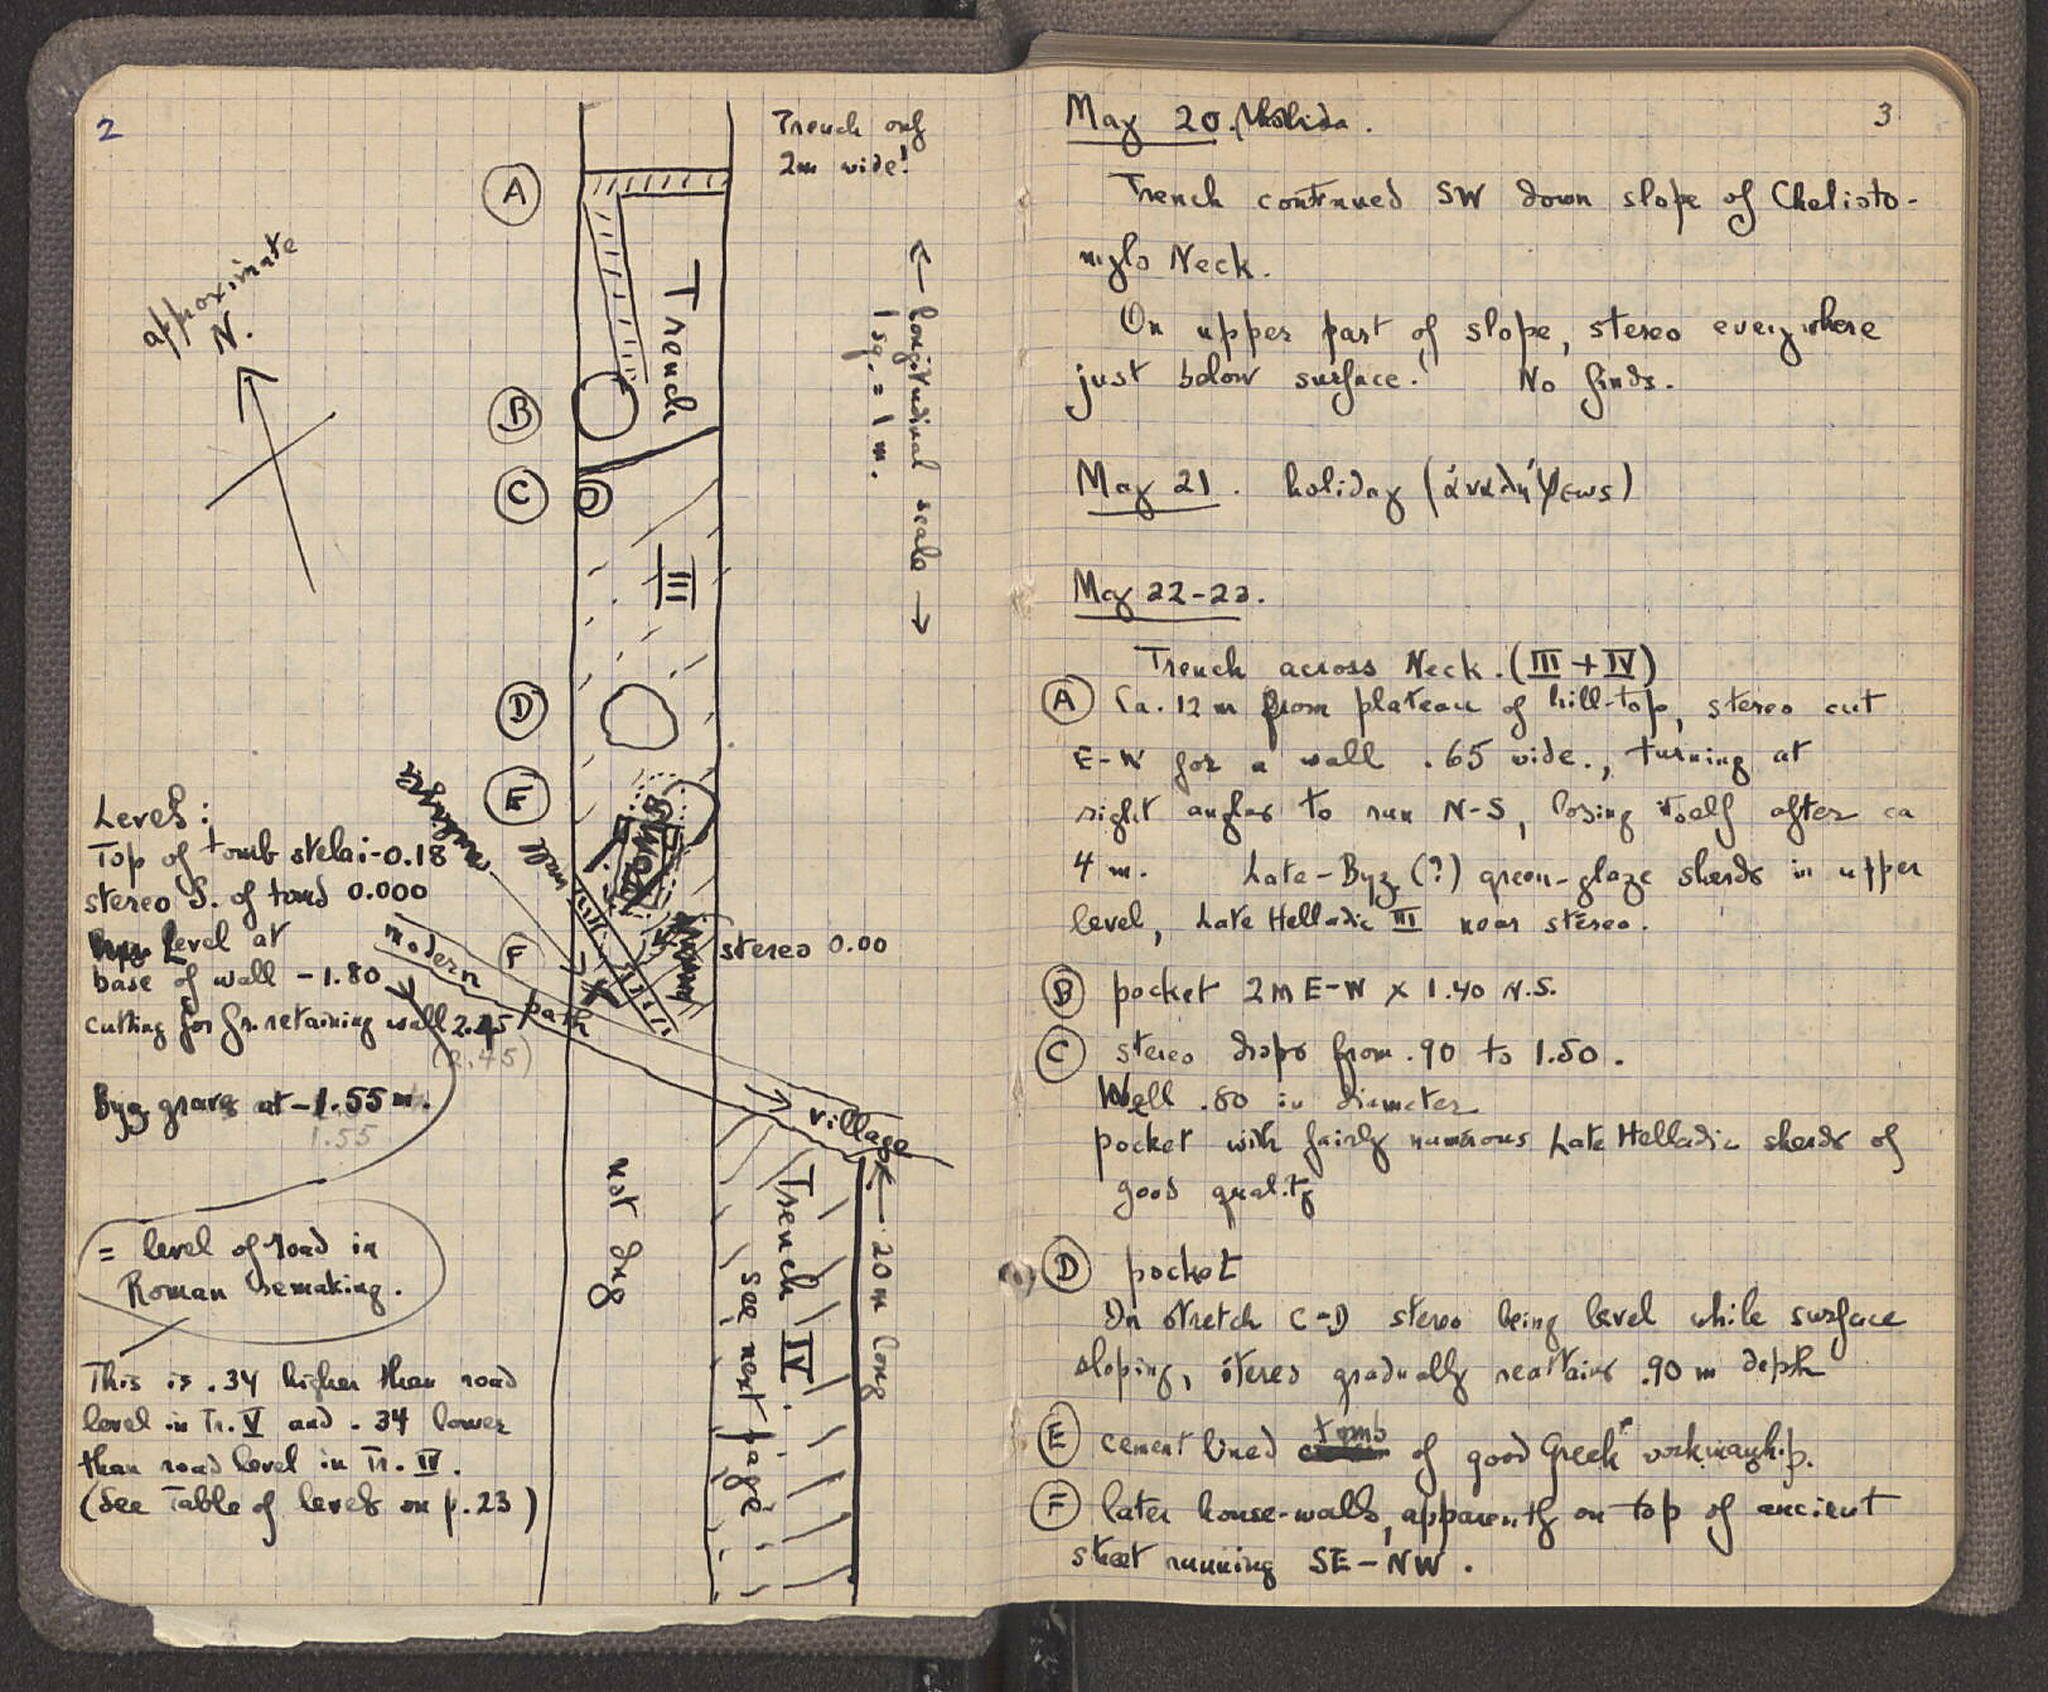 2
Trench only
2m wide!
A
approximate
N.
Trench
← longitudinal scale →
1 sq. = 1 m.
B
C
III
D
E
wall
Levels:
Top of tomb stelai -0.18
stereo S. of tomb 0.000
Level at
base of wall -1.80
cutting for Gr. retaining wall 2.45
(2.45)
Byz graves at -1.55 m.
1.55
modern path
F
stereo 0.00
village
← 20 m long
Trench IV.
see next page
not dug
= level of road in
Roman remaking.
This is .34 higher than road
level in Tr. V and .34 lower
than road level in Tr. IV.
(See Table of levels on p. 23)
3
May 20.
Trench continued SW down slope of Chelioto-
mylo Neck.
On upper part of slope, stereo everywhere
just below surface! No finds.
May 21. holiday (ἀναλήψεως)
May 22-23.
Trench across Neck. (III + IV)
A Ca. 12 m from plateau of hill-top, stereo cut
E-W for a wall .65 wide., turning at
right angles to run N-S, losing itself after ca
4 m. Late-Byz (?) green-glaze sherds in upper
level, Late Helladic III near stereo.
B pocket 2m E-W x 1.40 N.S.
C stereo drops from .90 to 1.50.
Well .80 in diameter
pocket with fairly numerous Late Helladic sherds of
good quality
D pocket
In stretch C-D stereo being level while surface
sloping, stereo gradually reattains .90 m depth
E cement lined tomb of good Greek workmanship.
F later house-walls, apparently on top of ancient
street running SE-NW.